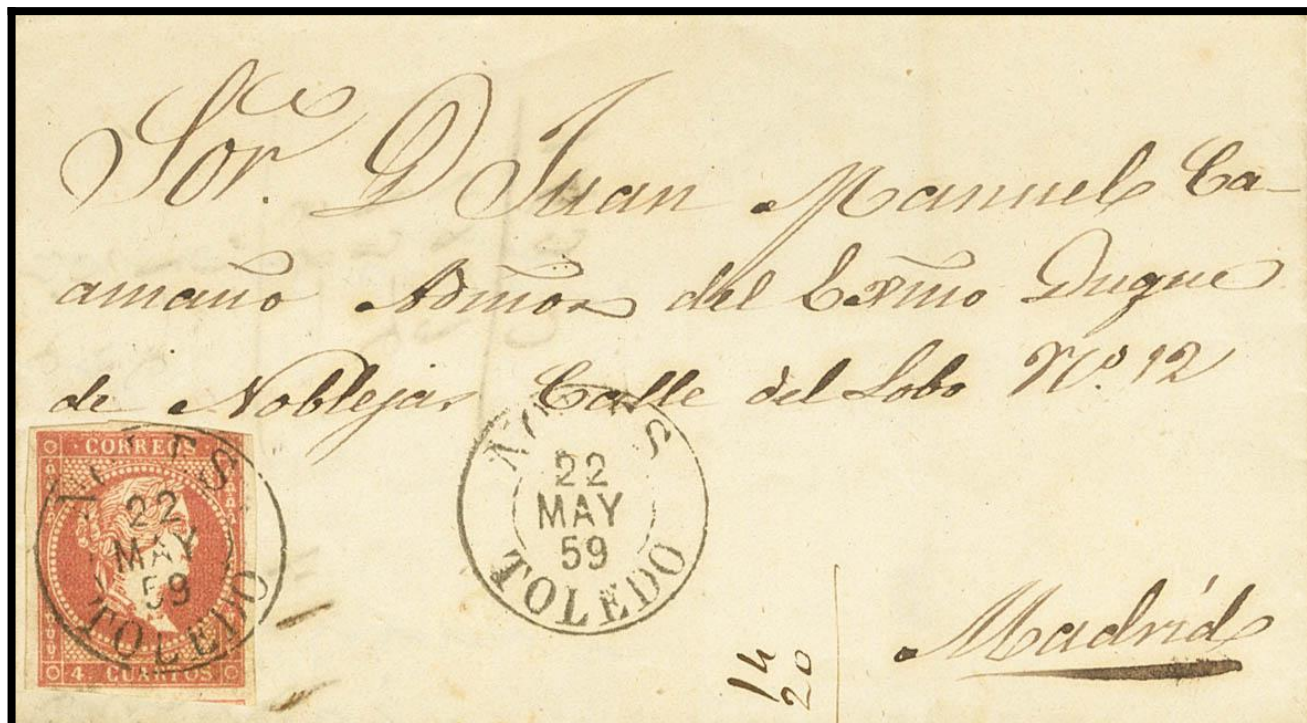 Sor. D Juan Manuel Ca-
amaño Admor del Exmo Duque
de Noblejas Calle del Lobo Nº 12
CORREOS
22
MAY
59
TOLEDO
4 CUARTOS
22
MAY
59
TOLEDO
Madrid
14
20